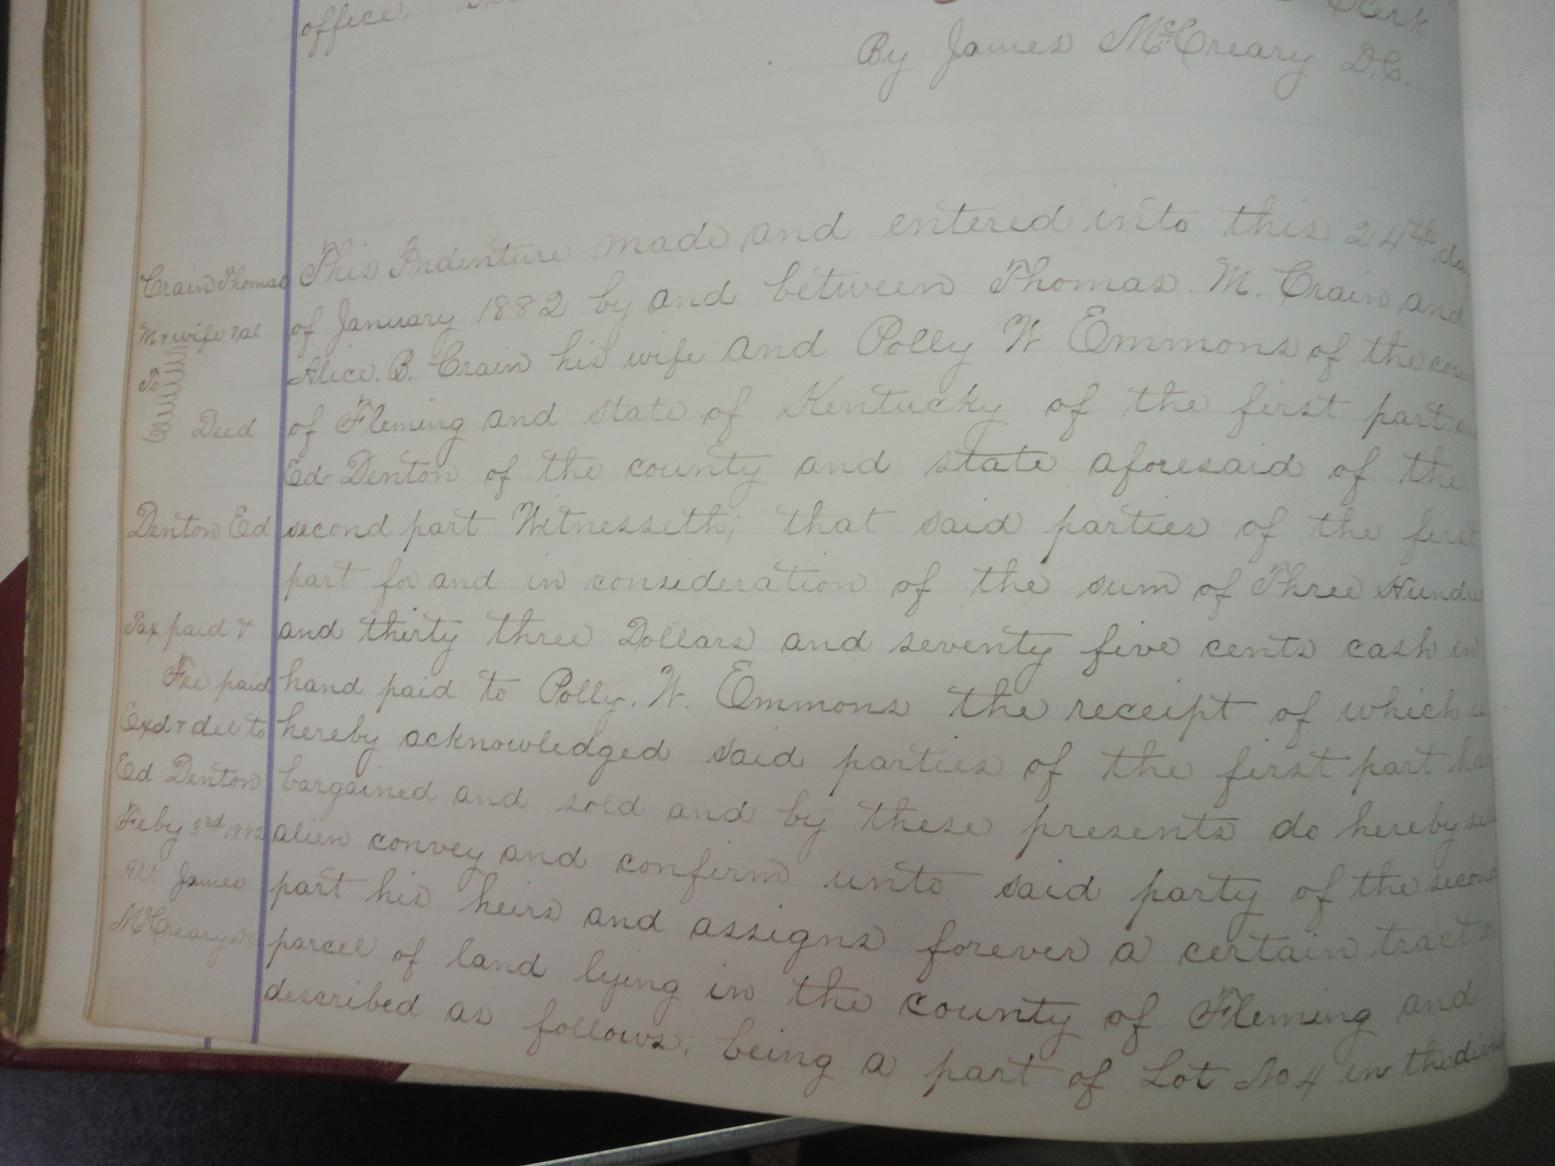 office.
Clerk
By James McCreary D.C.
Crain Thomas
M & wife & al
To
Deed
Denton Ed
Tax paid &
Fee paid
Exd & del to
Ed Denton
Feby 3rd 1882
Att. James
McCreary DC
This Indenture made and entered into this 24th day
of January 1882 by and between Thomas. M. Crain and
Alice. B. Crain his wife and Polly W Emmons of the cou
of Fleming and state of Kentucky of the first part
Ed Denton of the county and state aforesaid of the
second part Witnesseth; that said parties of the first
part for and in consideration of the sum of Three Hundre
and thirty three Dollars and seventy five cents cash in
hand paid to Polly. W. Emmons the receipt of which is
hereby acknowledged said parties of the first part ha
bargained and sold and by these presents do hereby sell
alien convey and confirm unto said party of the second
part his heirs and assigns forever a certain tract
parcel of land lying in the county of Fleming and
described as follows; being a part of Lot No 4 in the divi